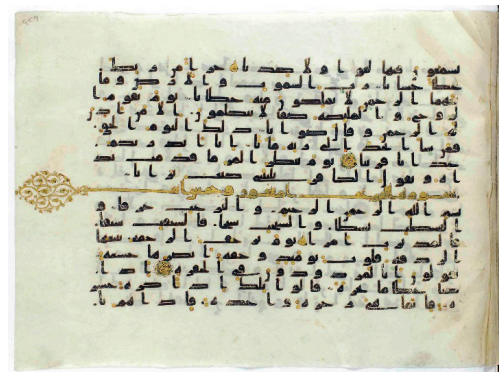 يسمعون فيها لغوا ولا كذبا جزا من ربك
عطا حسابا رب السموت والارض وما
بينهما الرحمن لا يملكون منه خطابا يوم يقوم ا
لروح والملئكة صفا لا يتكلمون الا من اذن
له الرحمن وقال صوابا ذلك اليوم الحق
فمن شا اتخذ الى ربه مابا انا انذرنكم
عذابا قريبا يوم ينظر المر ما قدمت يد
اه ويقول الكافر يليتني كنت تربا
سورة
بسم الله الرحمن الرحيم والنزعت غرقا و
النشطت نشطا والسبحت سبحا فالسبقت سبقا
فالمدبرت امرا يوم ترجف الراجفة تتبعها
الرادفة قلوب يومئذ واجفة ابصرها خشعة
يقولون انا لمردودون في الحافرة اذا
كنا عظما نخرة قالوا تلك اذا كرة خاسر
ة فانما هي زجرة وحدة فاذا هم با